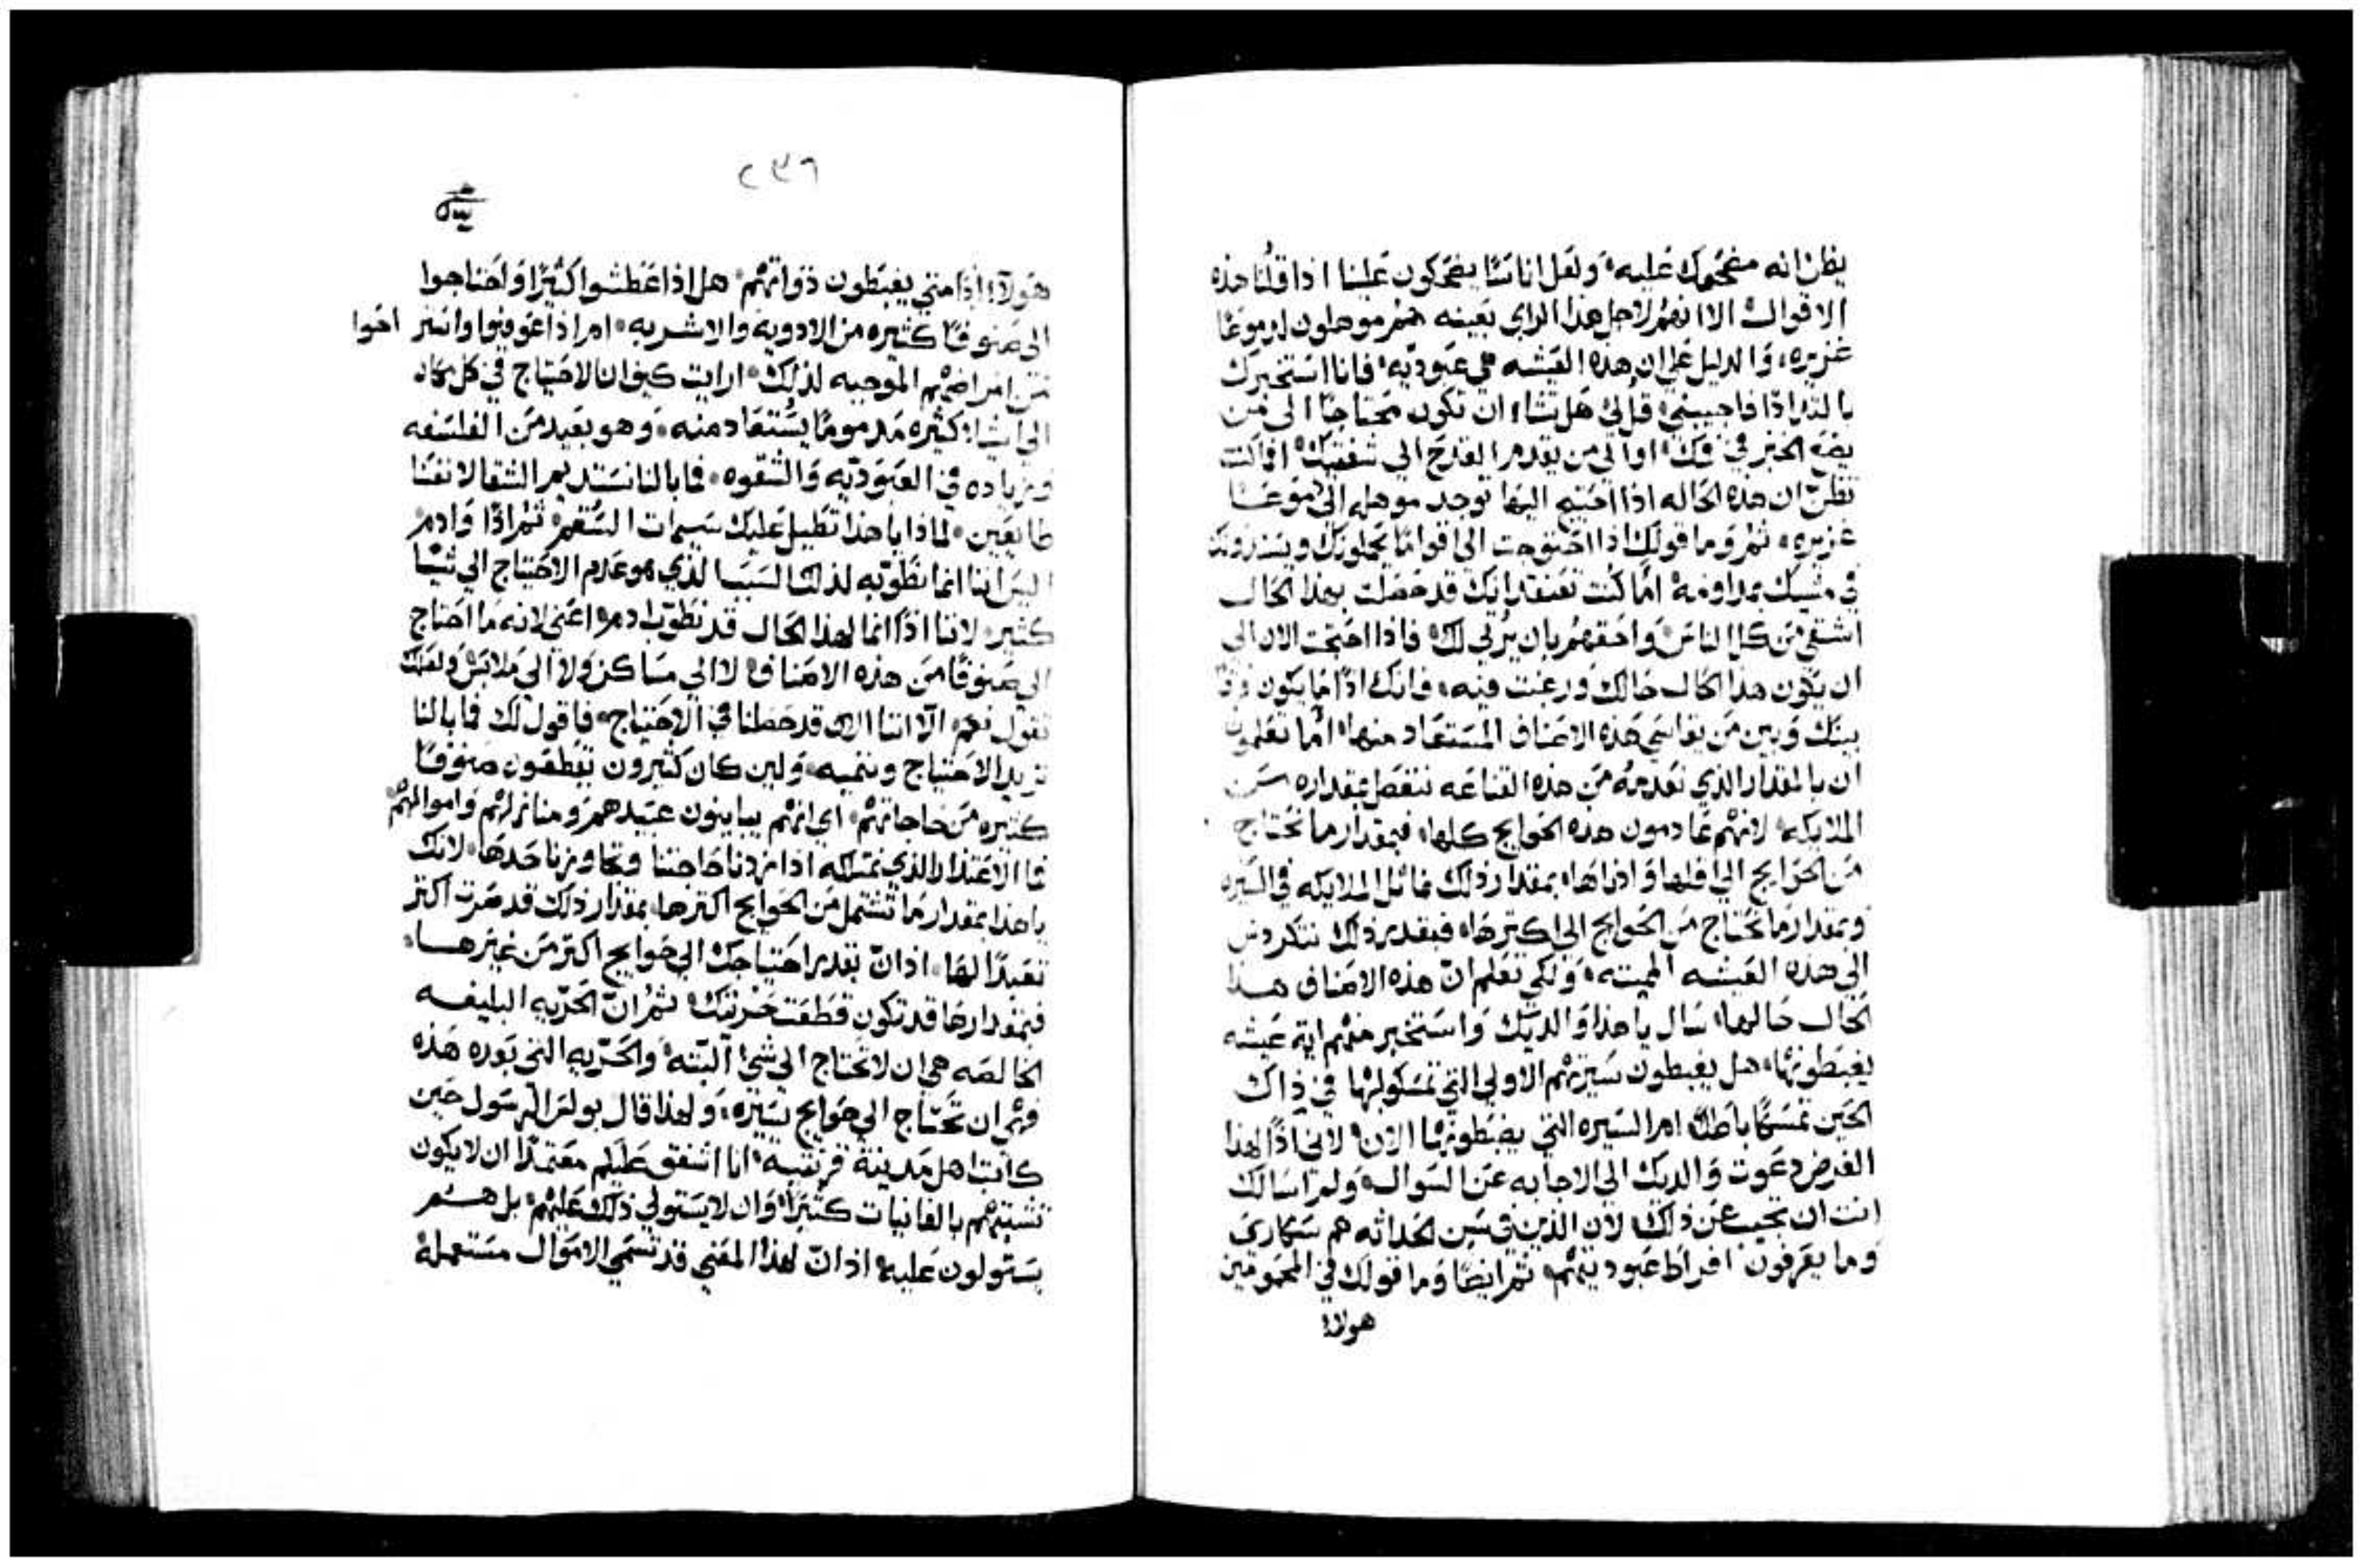 يظن انه مضحوك عليه، ولعل اناسًا يضحكون علينا اذا قلنا هذه
الاقوال الا انهم لاجل هذا الراي بعينه هم موهلون لدموعًا
غزيره، والدليل علي ان هذه العيشه هي عبوديه، فانا استخبرك
بالتذاذًا فاجيبني، قل لي هل تشاء ان تكون محتاجًا الي من
يضع الخبز في فمك، او الي من يقدم القدح الي شفتيك، افما كنت
تظن ان هذه الحاله اذا احتيج اليها توجد موهله الي دموعًا
غزيره، ثم وما قولك اذا احتوجت الي اقوامًا يحملونك ويسندونك
في مشيك بمداومة، اما كنت تعتقد انك قد حصلت بهذا الحال
اشقي من كل الناس، واحقهم بان يرثي لك، فاذا احتجت الان الي
ان يكون هذا الحال حالك ورغبت فيه، فانك اذًا ما يكون فرقًا
بينك وبين من يقاسي هذه الاصناف المستعاد منها، اما تعلمون
ان بالمقدار الذي تعدمه من هذه القناعه تنقص بمقداره من
الملايكه، لانهم عادمون هذه الحوايج كلها، فبمقدار ما نحتاج
من الحوايج الي اقلها وادناها، بمقدار ذلك نماثل الملايكه في السيره
وبمقدار ما نحتاج من الحوايج الي اكثرها، فبقدر ذلك نتكردس
الي هذه العيشه المميته، ولكي تعلم ان هذه الاصناف هذا
الحال حالها، سال يا هذا والديك واستخبر منهم اية عيشه
يغبطونها، هل يغبطون سيرتهم الاولي التي تمسكوا بها في ذاك
الحين تمسكًا باطلًا، ام السيره التي يضبطونها الان، لاني اذًا لهذا
الغرض دعوت والديك الي الاجابه عن السوال، ولم اسالك
انت ان تجيب عن ذلك، لان الذين في سن الحداثه هم سكارى
وما يعرفون افراط عبوديتهم، ثم ايضًا وما قولك في المحمومين
هولاء
٢٣٦
هولاء اذًا متي يغبطون ذواتهم، هل اذا عطشوا كثيرًا واحتاجوا
الي صنوفًا كثيره من الادوية والاشربه، ام اذا عوفوا واستراحوا
من امراضهم الموجبه لذلك، ارايت كيف ان الاحتياج في كل مكان
الي اشياء كثيره مذمومًا يستعاد منه، وهو بعيد من الفلسفه
وزياده في العبوديه والشقوه، فما بالنا نستديم الشقا لانفسنا
طايعين، لماذا يا هذا تطيل عليك سيمات السقم، ثم اذًا وادم
اليس اننا انما نطوبه لذلك السبب الذي هو عدم الاحتياج الي شيًا
كثير، لاننا اذًا انما لهذا الحال قد نطوب ادم، اعني لانه ما احتاج
الي صنوفًا من هذه الاصناف، لا الي مساكن ولا الي ملابس، ولعلك
تقول نعم، الا اننا الان قد حصلنا في الاحتياج، فاقول لك فما بالنا
نزيد الاحتياج وننميه، ولين كان كثيرون يقطعون صنوفًا
كثيره من حاجاتهم، اي انهم يباينون عبيدهم ومنازلهم واموالهم
فما الاعتذار الذي نمتلكه اذا زدنا حاجتنا وتجاوزنا حدها، لانك
يا هذا بمقدار ما تشتمل من الحوايج اكثرها، بمقدار ذلك قد صرت اكثر
تعبدًا لها، اذ ان بقدر احتياجك الي حوايج اكثر من غيرها،
فبمقدارها قد تكون قطعت حريتك، ثم ان الحريه البليغه
الخالصه هي ان لا تحتاج الي شيء البتة، والحريه التي بورود هذه
فهي ان تحتاج الي حوايج يسيره، ولهذا قال بولس الرسول حين
كاتب اهل مدينة قرنتيه، انا اشفق عليكم معتمدًا ان لا يكون
تشبثهم بالفانيات كثيرًا، وان لا يستولي ذلك عليهم، بل هم
يستولون عليه، اذ ان لهذا المعني قد تسمي الاموال مستعملة